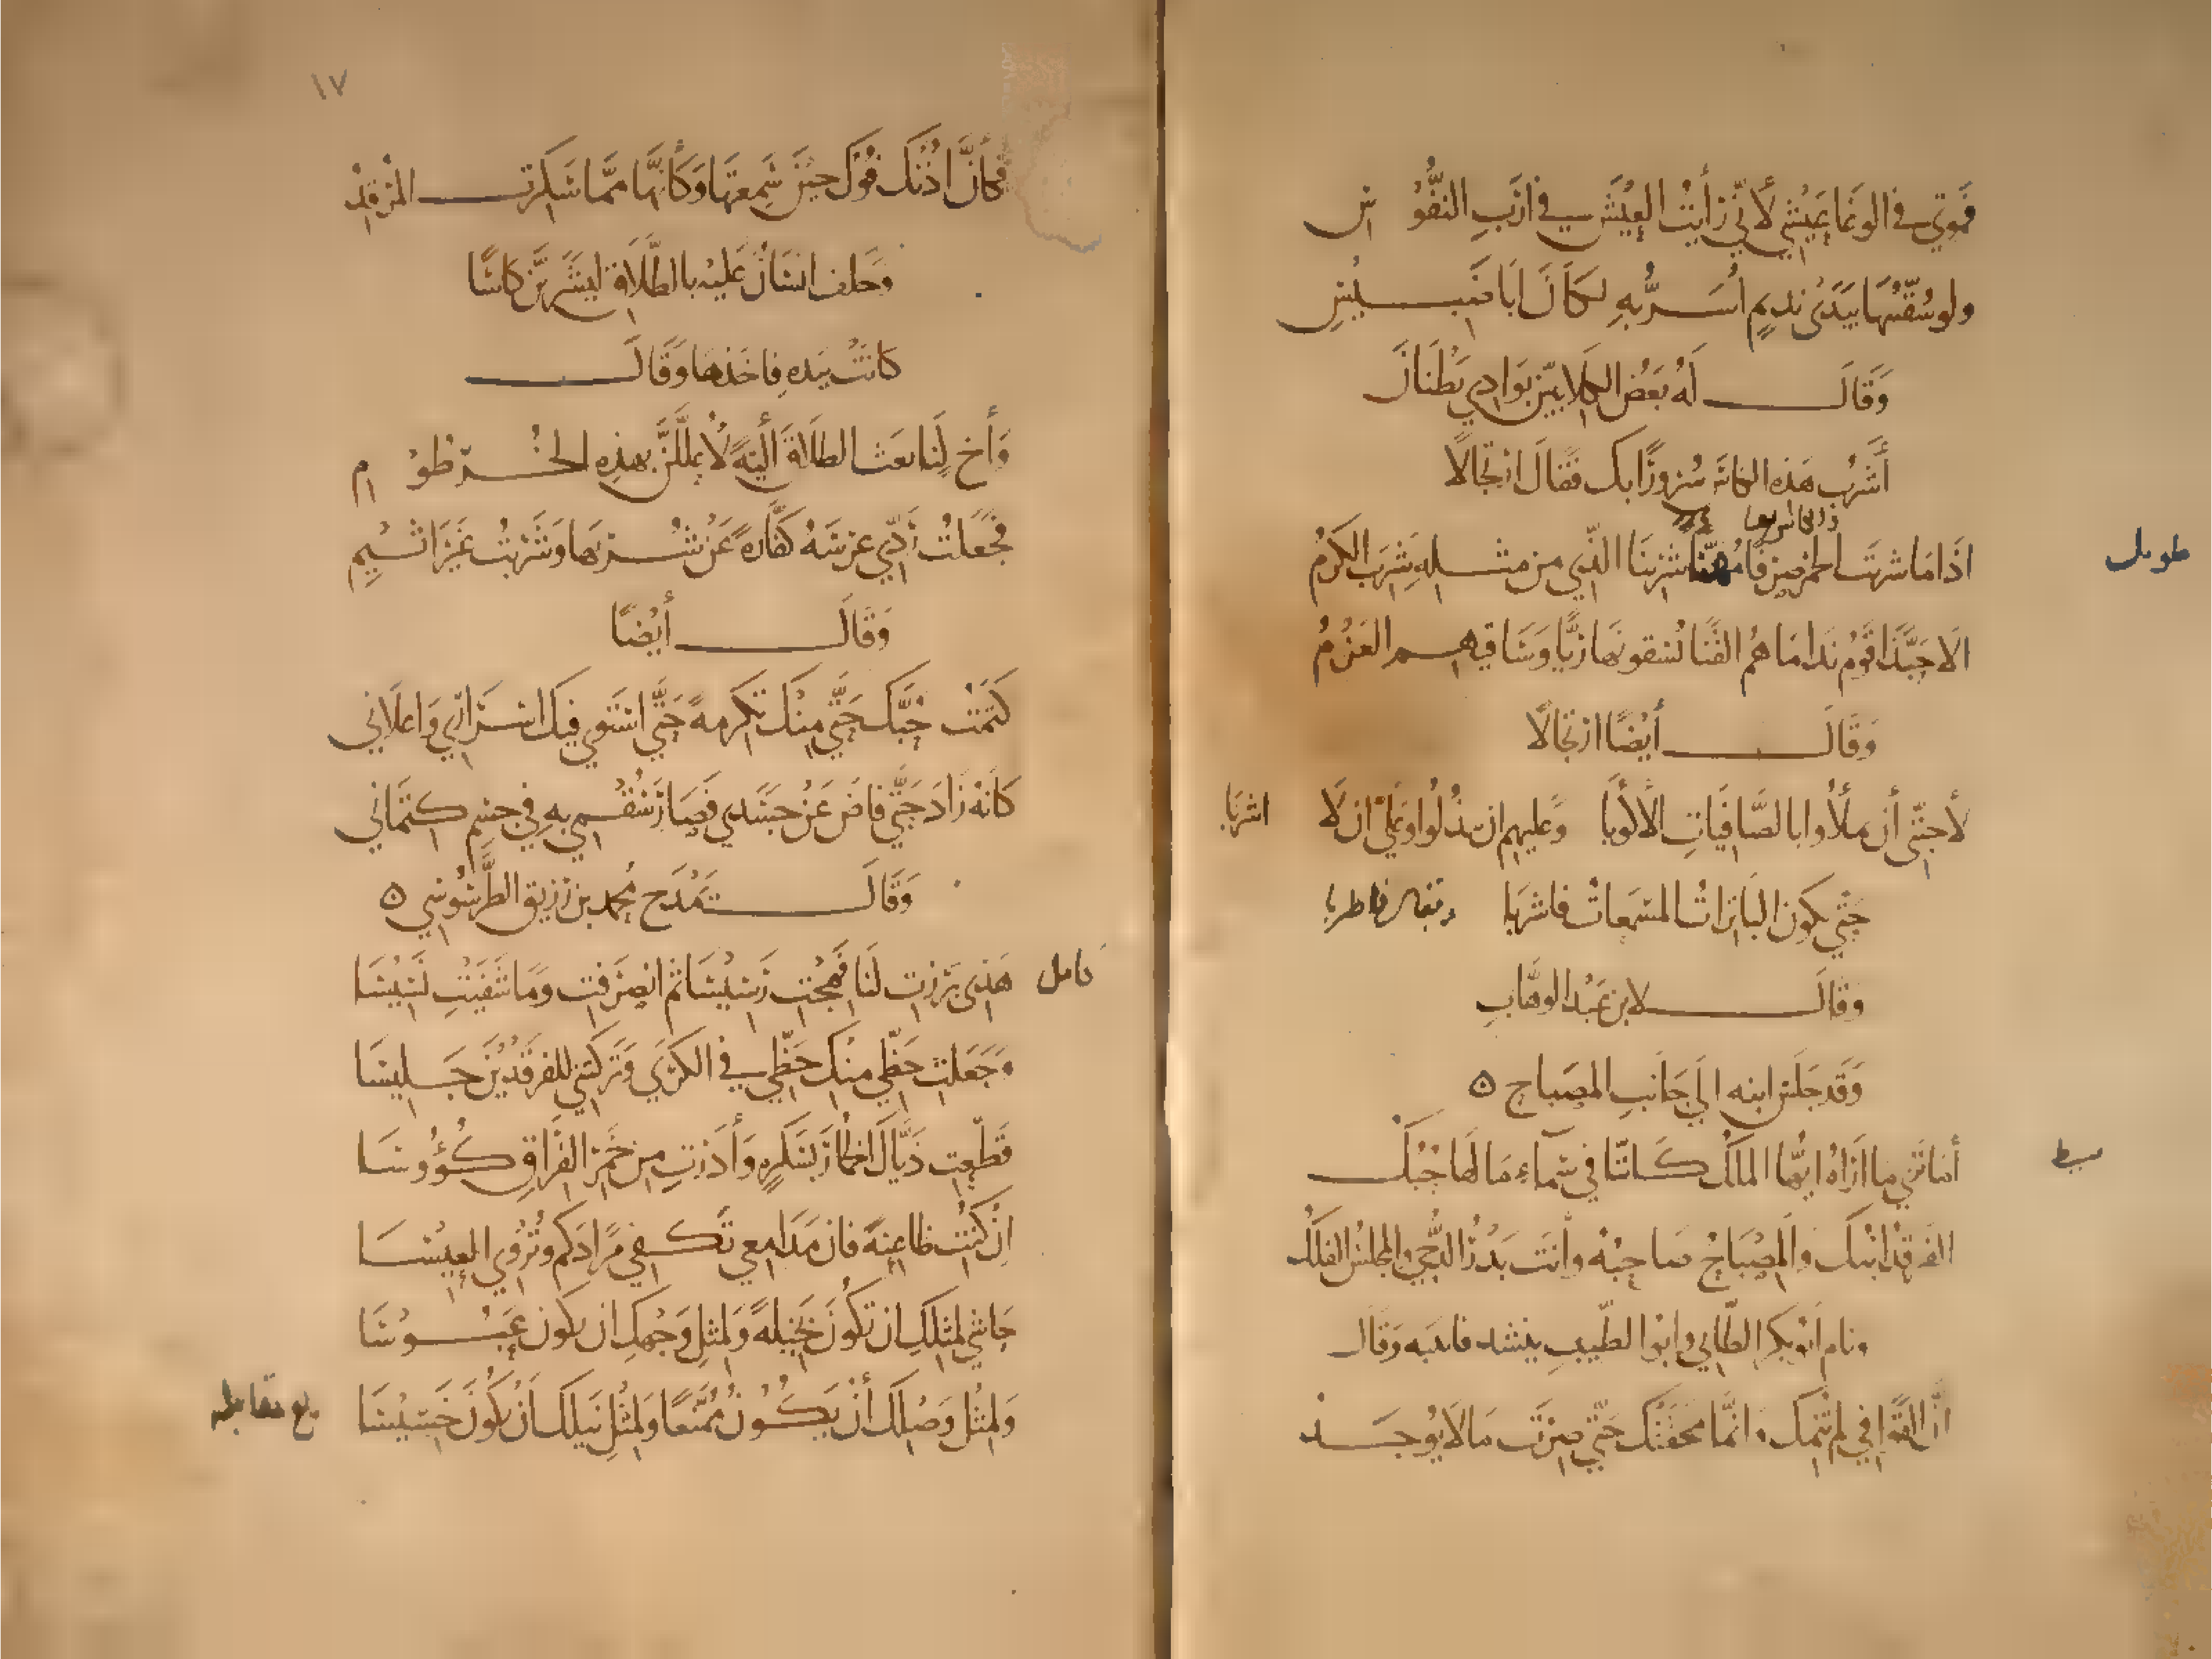 فَموتي في الوَغَا عَيْشي لأنّي رَأيْتُ العِيْشَ في أرَبِ النّفُوْسِ
ولو سُقّيْتُهَا بيَدَىْ نديمٍ أُسَرُّ بهِ لكَانَ أبَا ضَبِيْسِ
وَقَالَ لَهُ بَعْضُ الكلابيّين بوَادِي بَطْنَانَ
أَشْرَبُ هَذه الكاسَ سُرورًا بك فَقالَ ارتجالًا
طويل
ذا الكاس
اذَا مَا شربتَ الخمرَ صِرفًا مُهَنّأً شَرِبنَا الَّذي من مثلهِ شَرِبَ الكرْمُ
الَا حَبَّذَا قَوْم نَدَامَاهُم القَنَا يُسْقونَهَا رِيًّا وَسَاقيهم العَزْمُ
وَقَالَ أيْضًا ارتجَالًا
لأحبّتي أنْ يملأُوا بالصَّافِيَاتِ الأكْوُبَا وَعليهِم ان يبذُلُوا وَعَلَىَّ ان لَا اشربَا
حَتَّي يكون البَاتراتُ المسْمِعاتُ فاطربَا
وَقَالَ لابن عَبْد الوهَّابِ
وَقَد جَلَسَ ابنه الَي جَانبِ المِصبَاح ه
بسيط
أمَا تَرَي مَا ارَاهُ ايُّهَا المَلكُ كَأنّنَا في سَماءٍ مَا لهَا حُبُكُ
الفَرقدُ ابْنُكَ وَالمِصْبَاحُ صَاحِبُهُ وأنتَ بَدْرُ الدُّجَي وَالمجلسُ الفلَكُ
ونام أبُو بَكر الطَّائي وأبُو الطَّيبِ ينشد فانتبه وَقَال
انَّ القَوَافي لم تُنِمْكَ وانَّمَا محقَتْكَ حَتَّي صِرْتَ مَا لَا يُوجَدُ
١٧
فكَأنَّ اذْنَكَ فُوْكَ حِيْنَ سَمِعتَهَا وَكَأنَّهَا ممَّا سَكِرْتَ المُرْقِدُ
وَحَلف انسَانٌ عَليْه بالطَّلَاق ليَشْرَبَنَّ كاسًا
كانَتْ بيَدهِ فاخَذهَا وَقَالَ
وَأخٍ لَنَا بَعَثَ الطلَاقَ أليَّةً لَأُعَلَّلَنَّ بهذِهِ الخُرْطُوْمِ
فَجَعَلْتُ رَدّي عِرْسَهُ كفَّارةً عَنْ شُربهَا وَشَرِبْتُ غَيْرَ اثِيْمِ
وَقَالَ أَيْضًا
كَتَمْتُ حُبَّكِ حَتَّي مِنْكِ تَكرمةً حَتَّي اسْتَوي فيكِ اسْرَاري وَاعلَاني
كَانّهُ زَادَ حَتَّي فاضَ عَنْ جَسَدي فَصَارَ سُقْمي بهِ في جِسْمِ كتْمَاني
وَقَالَ يَمْدَح مُحمد بن زُرَيق الطَّرسُوسِي ه
كامل
هَذِي بَرَزتِ لَنَا فَهِجْتِ رَسِيْسَا ثُمّ انصَرَفتِ ومَا شَفَيْتِ نَسِيْسَا
وَجَعَلتِ حَظّي مِنْكِ حَظّي في الكَرَي وَتَرَكْتِني لِلفَرقَدَيْنِ جَلِيسَا
قَطّعتِ ذيَّاكِ الخُمَارَ بسَكرةٍ وَأَدَرْتِ مِن خَمْرِ الفِرَاقِ كُؤُوسَا
ان كُنْتِ ظاعِنةً فان مَدَامِعي تَكْفي مَزَادَكُم وتُرْوِي العِيْسَا
حَاشَي لمثلكِ ان تَكُونَ بَخيلةً وَلمثلِ وَجْهِكِ ان يَكون عَبُوْسَا
وَلمثْلِ وَصْلِكَ أنْ يَكُوْنَ مُمَنَّعًا وَلمثْلِ نَيلكَ أنْ يَكُونَ خَسِيْسَا
بلغ مقابله